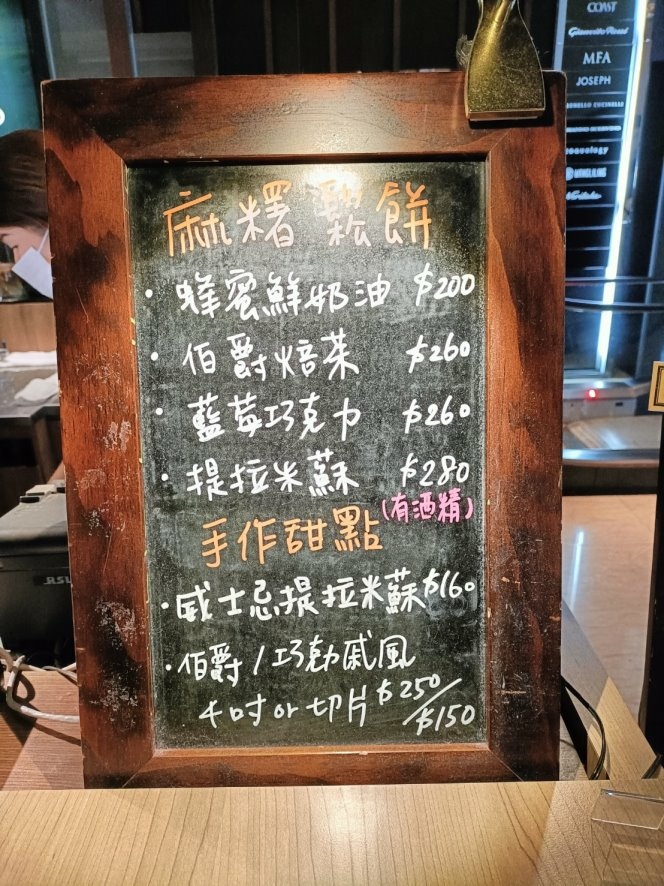 COAST
Gianvito Rossi
MFA
JOSEPH
BRUNELLO CUCINELLI
麻糬鬆餅
· 蜂蜜鮮奶油 $200
· 伯爵焙茶 $260
· 藍莓巧克力 $260
· 提拉米蘇 $280
(有酒精)
手作甜點
· 威士忌提拉米蘇 $160
· 伯爵/巧勀戚風
4吋or切片 $250/$150